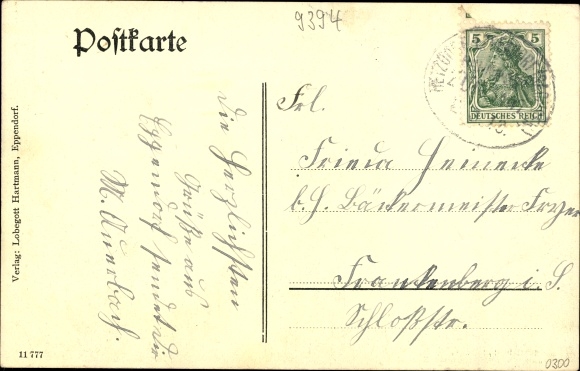 Postkarte
9394
5 5
DEUTSCHES REICH
Die herzlichsten
Grüße aus
Eppendorf sendet Dir
M. Auerbach.
Frl.
Frieda Hemerke
b. H. Bäckermeister
Frankenberg i. S.
Schloßstr.
Verlag: Lobegott Hartmann, Eppendorf.
11 777
0300